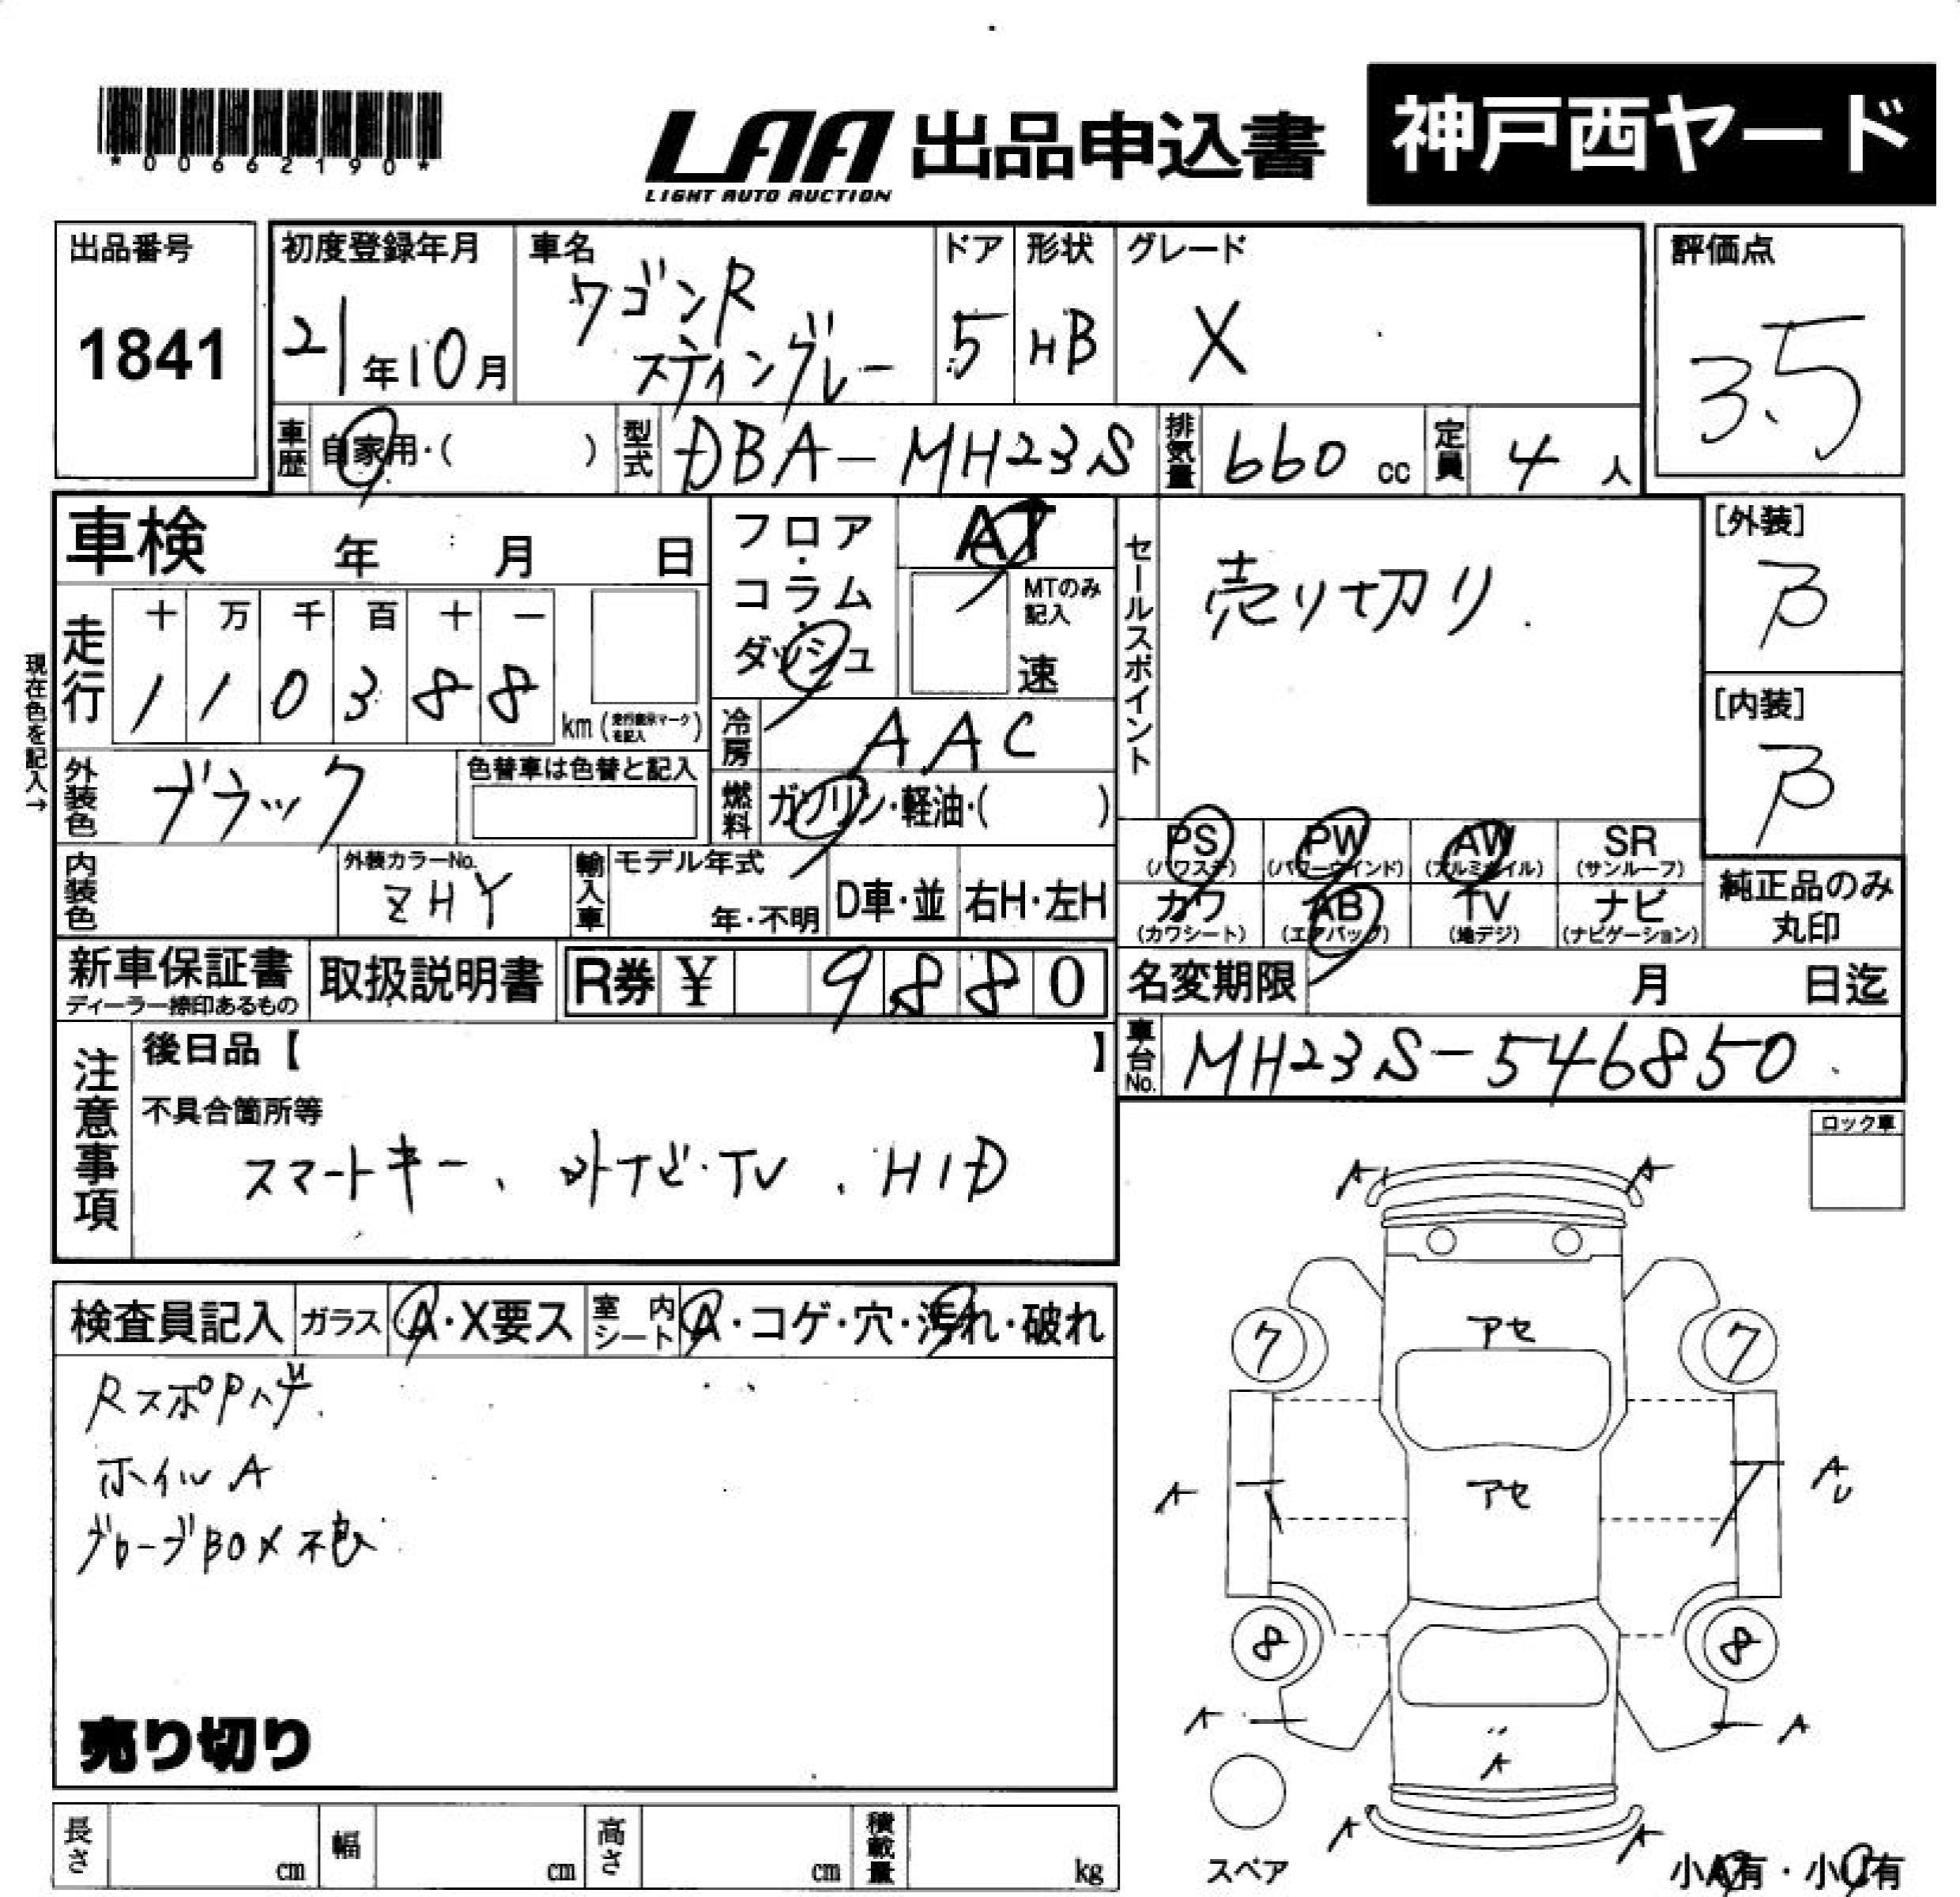 *00662190*
LAA 出品申込書 神戸西ヤード
LIGHT AUTO AUCTION
出品番号 初度登録年月 車名 ドア 形状 グレード 評価点
1841 21年10月 ワゴンR スティングレー 5 HB X 3.5
車歴 自家用・( ) 型式 DBA-MH23S 排気量 660 cc 定員 4 人
車検 年 月 日
フロア・コラム・ダッシュ
AT
MTのみ記入
速
セールスポイント
売り切り.
[外装]
B
[内装]
B
現在色を記入→
走行
十 万 千 百 十 一
1 1 0 3 8 8
km (走行表示マークを記入)
冷房 AAC
外装色 ブラック
色替車は色替と記入
燃料 ガソリン・軽油・( )
PS (パワステ) PW (パワーウインド) AW (アルミホイル) SR (サンルーフ)
カワ (カワシート) AB (エアバッグ) TV (地デジ) ナビ (ナビゲーション)
純正品のみ
丸印
内装色
外装カラーNo.
ZHY
輸入車
モデル年式
年・不明
D車・並 右H・左H
新車保証書
ディーラー捺印あるもの
取扱説明書
R券 ¥ 9 8 8 0
名変期限 月 日迄
注意事項
後日品【 】
車台No. MH23S-546850
不具合箇所等
スマートキー、外ナビ・TV、HID
ロック車
検査員記入 ガラス A・X要ス 室内シート A・コゲ・穴・汚れ・破れ
RスポPハゲ
ホイルA
グローブBOX不良
売り切り
A A
7 アセ 7
A アセ AU
8 8
A A A
A A
スペア
小A有・小U有
長さ cm 幅 cm 高さ cm 積載量 kg